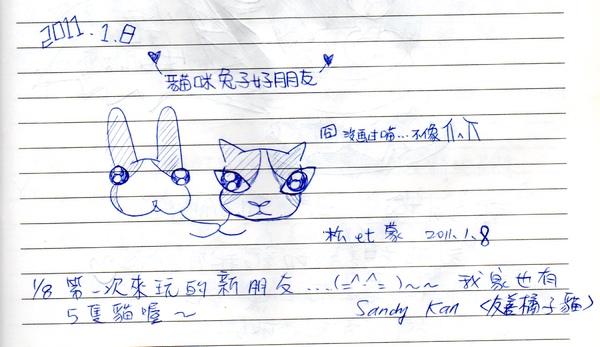 2011.1.8
貓咪兔子好朋友
囧 沒畫過喵...不像 ㄇ^ㄇ
松 et 蒙 2011.1.8
1/8 第一次來玩的新朋友...(=^.^=)~~ 我家也有
5隻貓喔~ Sandy Kan <友善橘子貓>